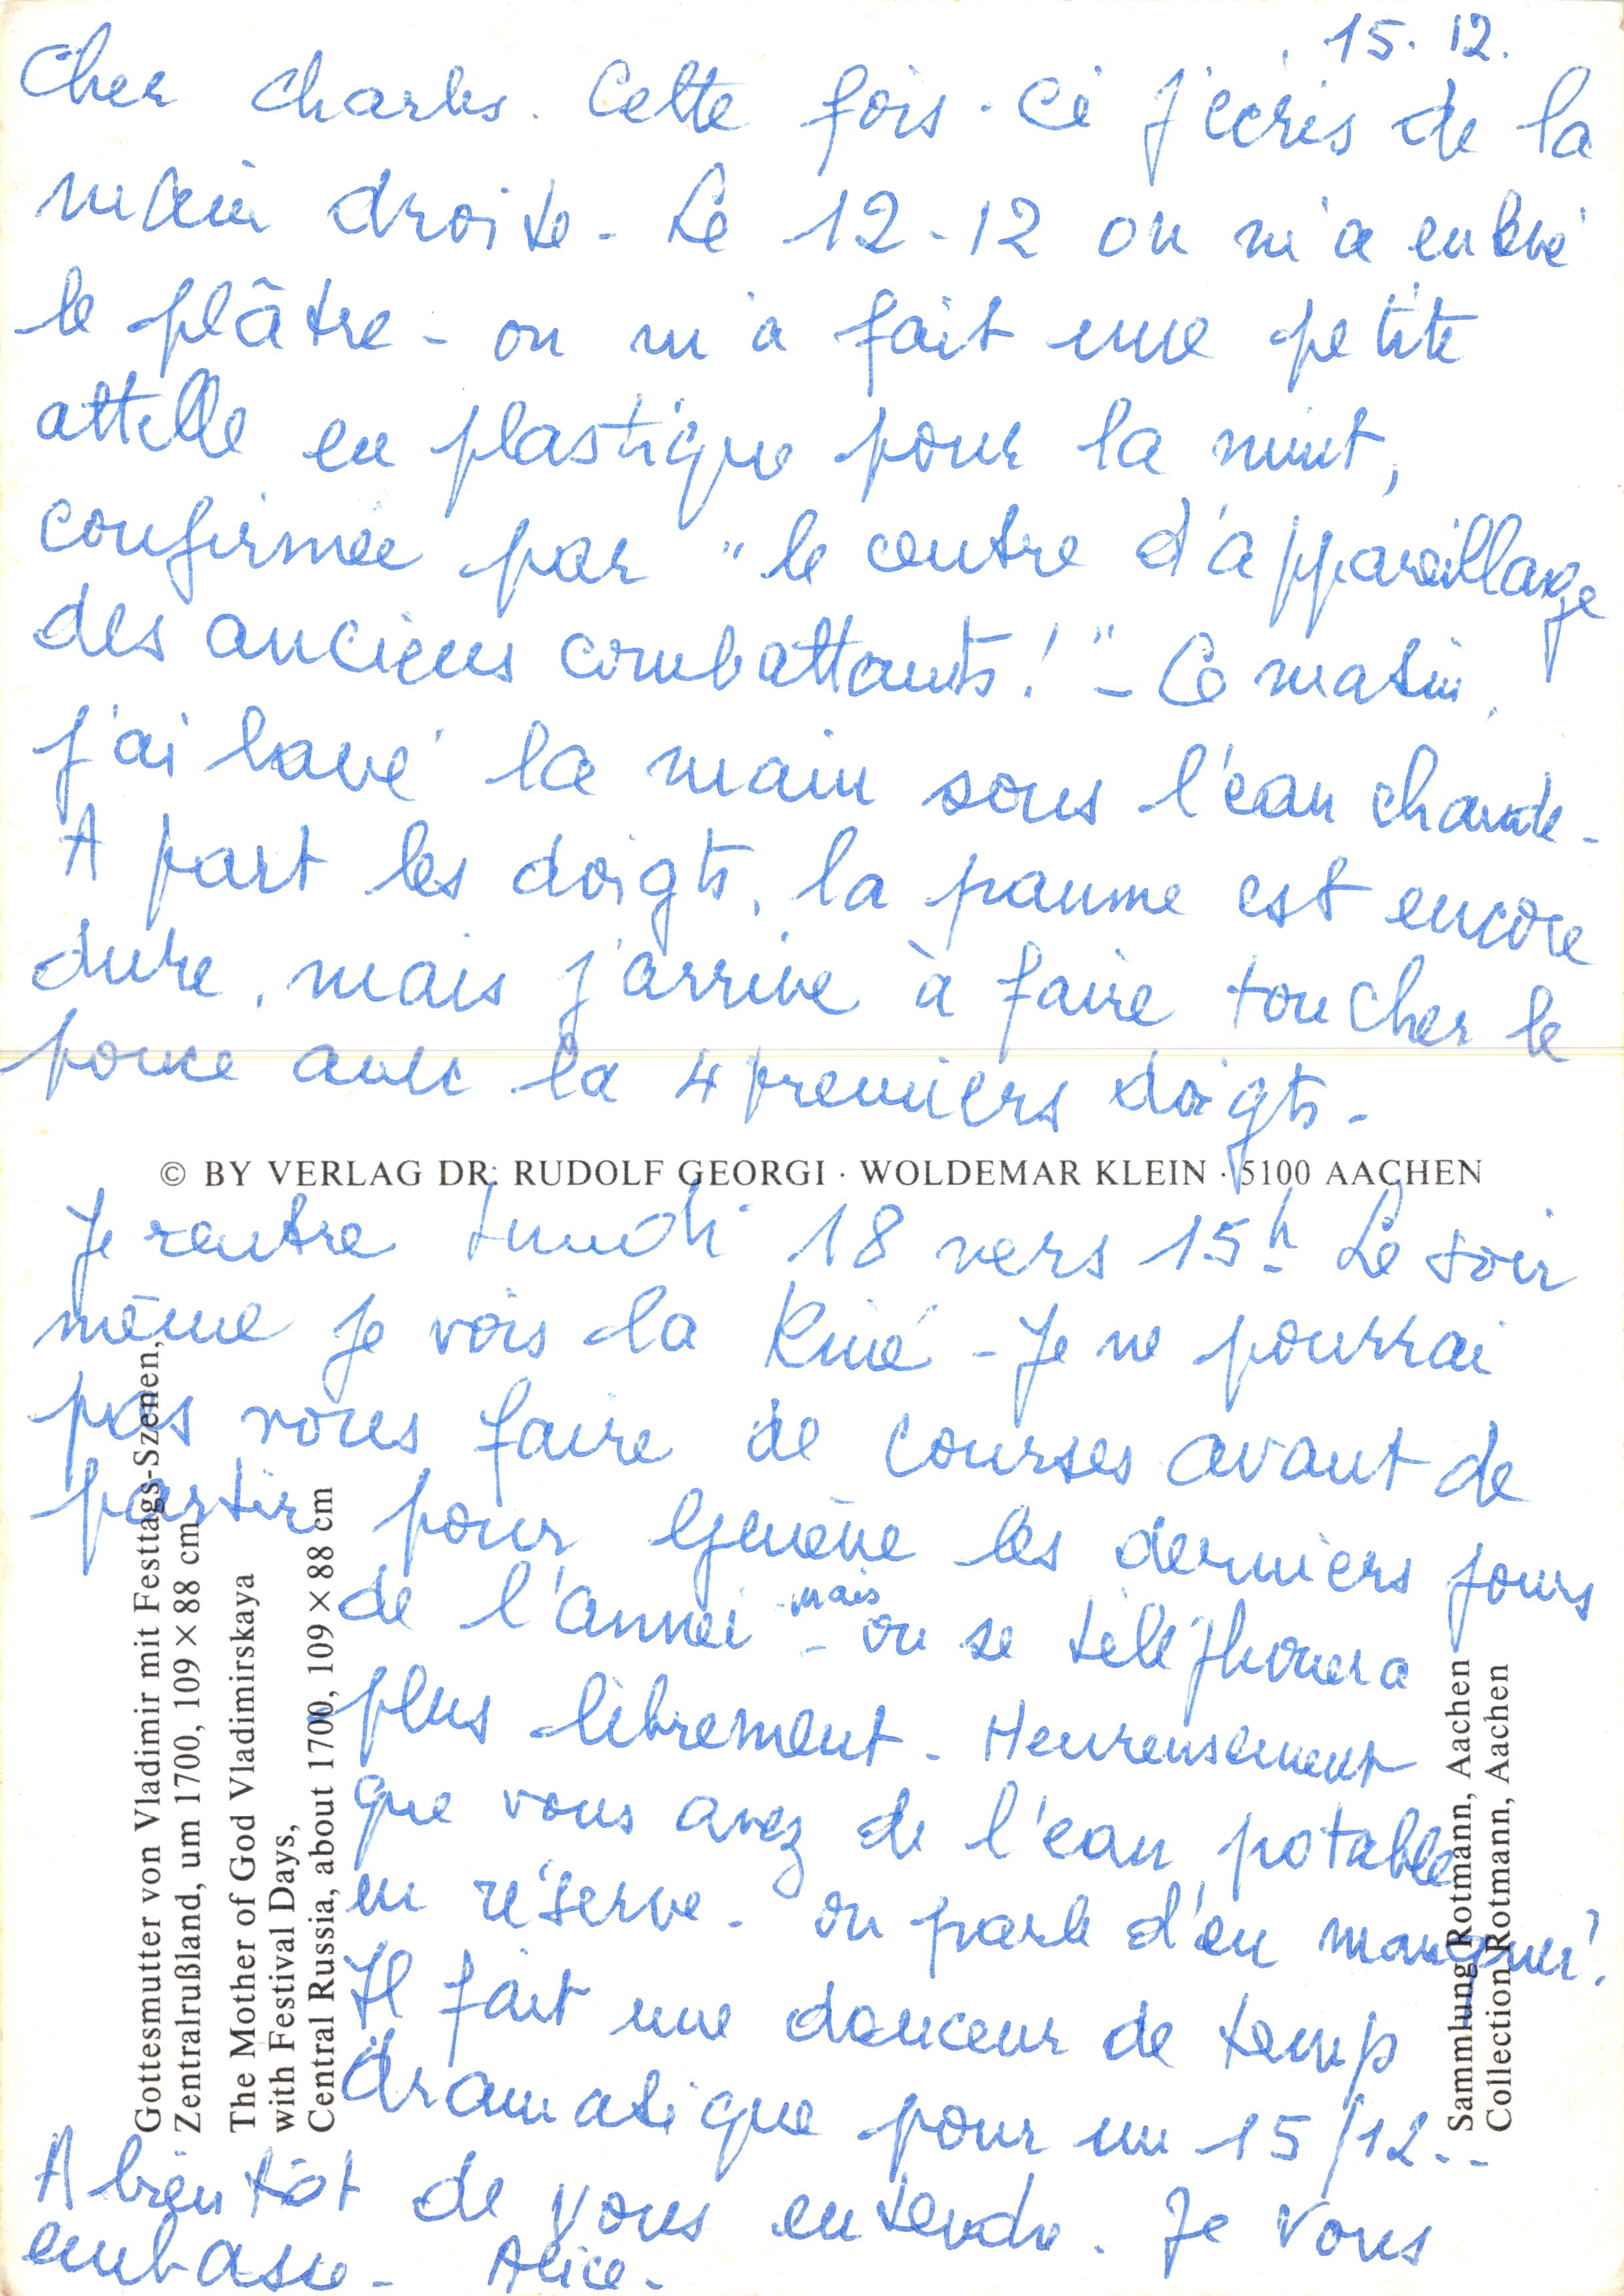 15. 12.
Cher Charles. Cette fois-ci j'écris de la
main droite - Le 12-12 on m'a enlevé
le plâtre - on m'a fait une petite
attelle en plastique pour la nuit,
confirmée par "le centre d'appareillage
des anciens combattants!" - Ce matin,
j'ai lavé la main sous l'eau chaude -
A part les doigts, la paume est encore
dure, mais j'arrive à faire toucher le
pouce avec la 4 premiers doigts -
© BY VERLAG DR. RUDOLF GEORGI · WOLDEMAR KLEIN · 5100 AACHEN
Je rentre Lundi 18 vers 15h Le soir
même je vois la Kiné - Je ne pourrai
pas vous faire de courses avant de
partir pour Genève les derniers jours
de l'année - mais on se téléphonera
plus librement - Heureusement
que vous avez de l'eau potable
en réserve - on parle d'en manquer!
Il fait une douceur de temp
dramatique pour un 15/12..
A bientôt de vous entendre. Je vous
embrasse - Alice -
Gottesmutter von Vladimir mit Festtags-Szenen,
Zentralrußland, um 1700, 109 × 88 cm
The Mother of God Vladimirskaya
with Festival Days,
Central Russia, about 1700, 109 × 88 cm
Sammlung Rotmann, Aachen
Collection Rotmann, Aachen